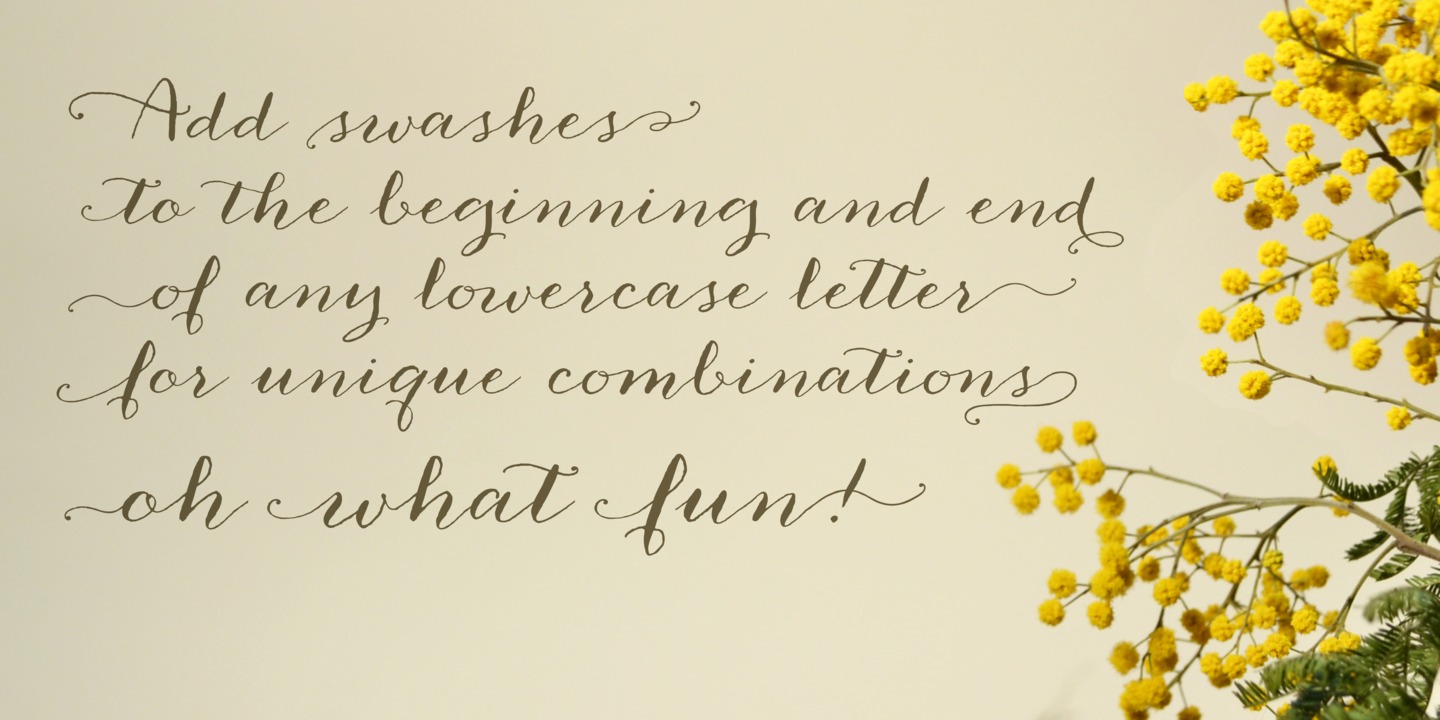 Add swashes
to the beginning and end
of any lowercase letter
for unique combinations
oh what fun!